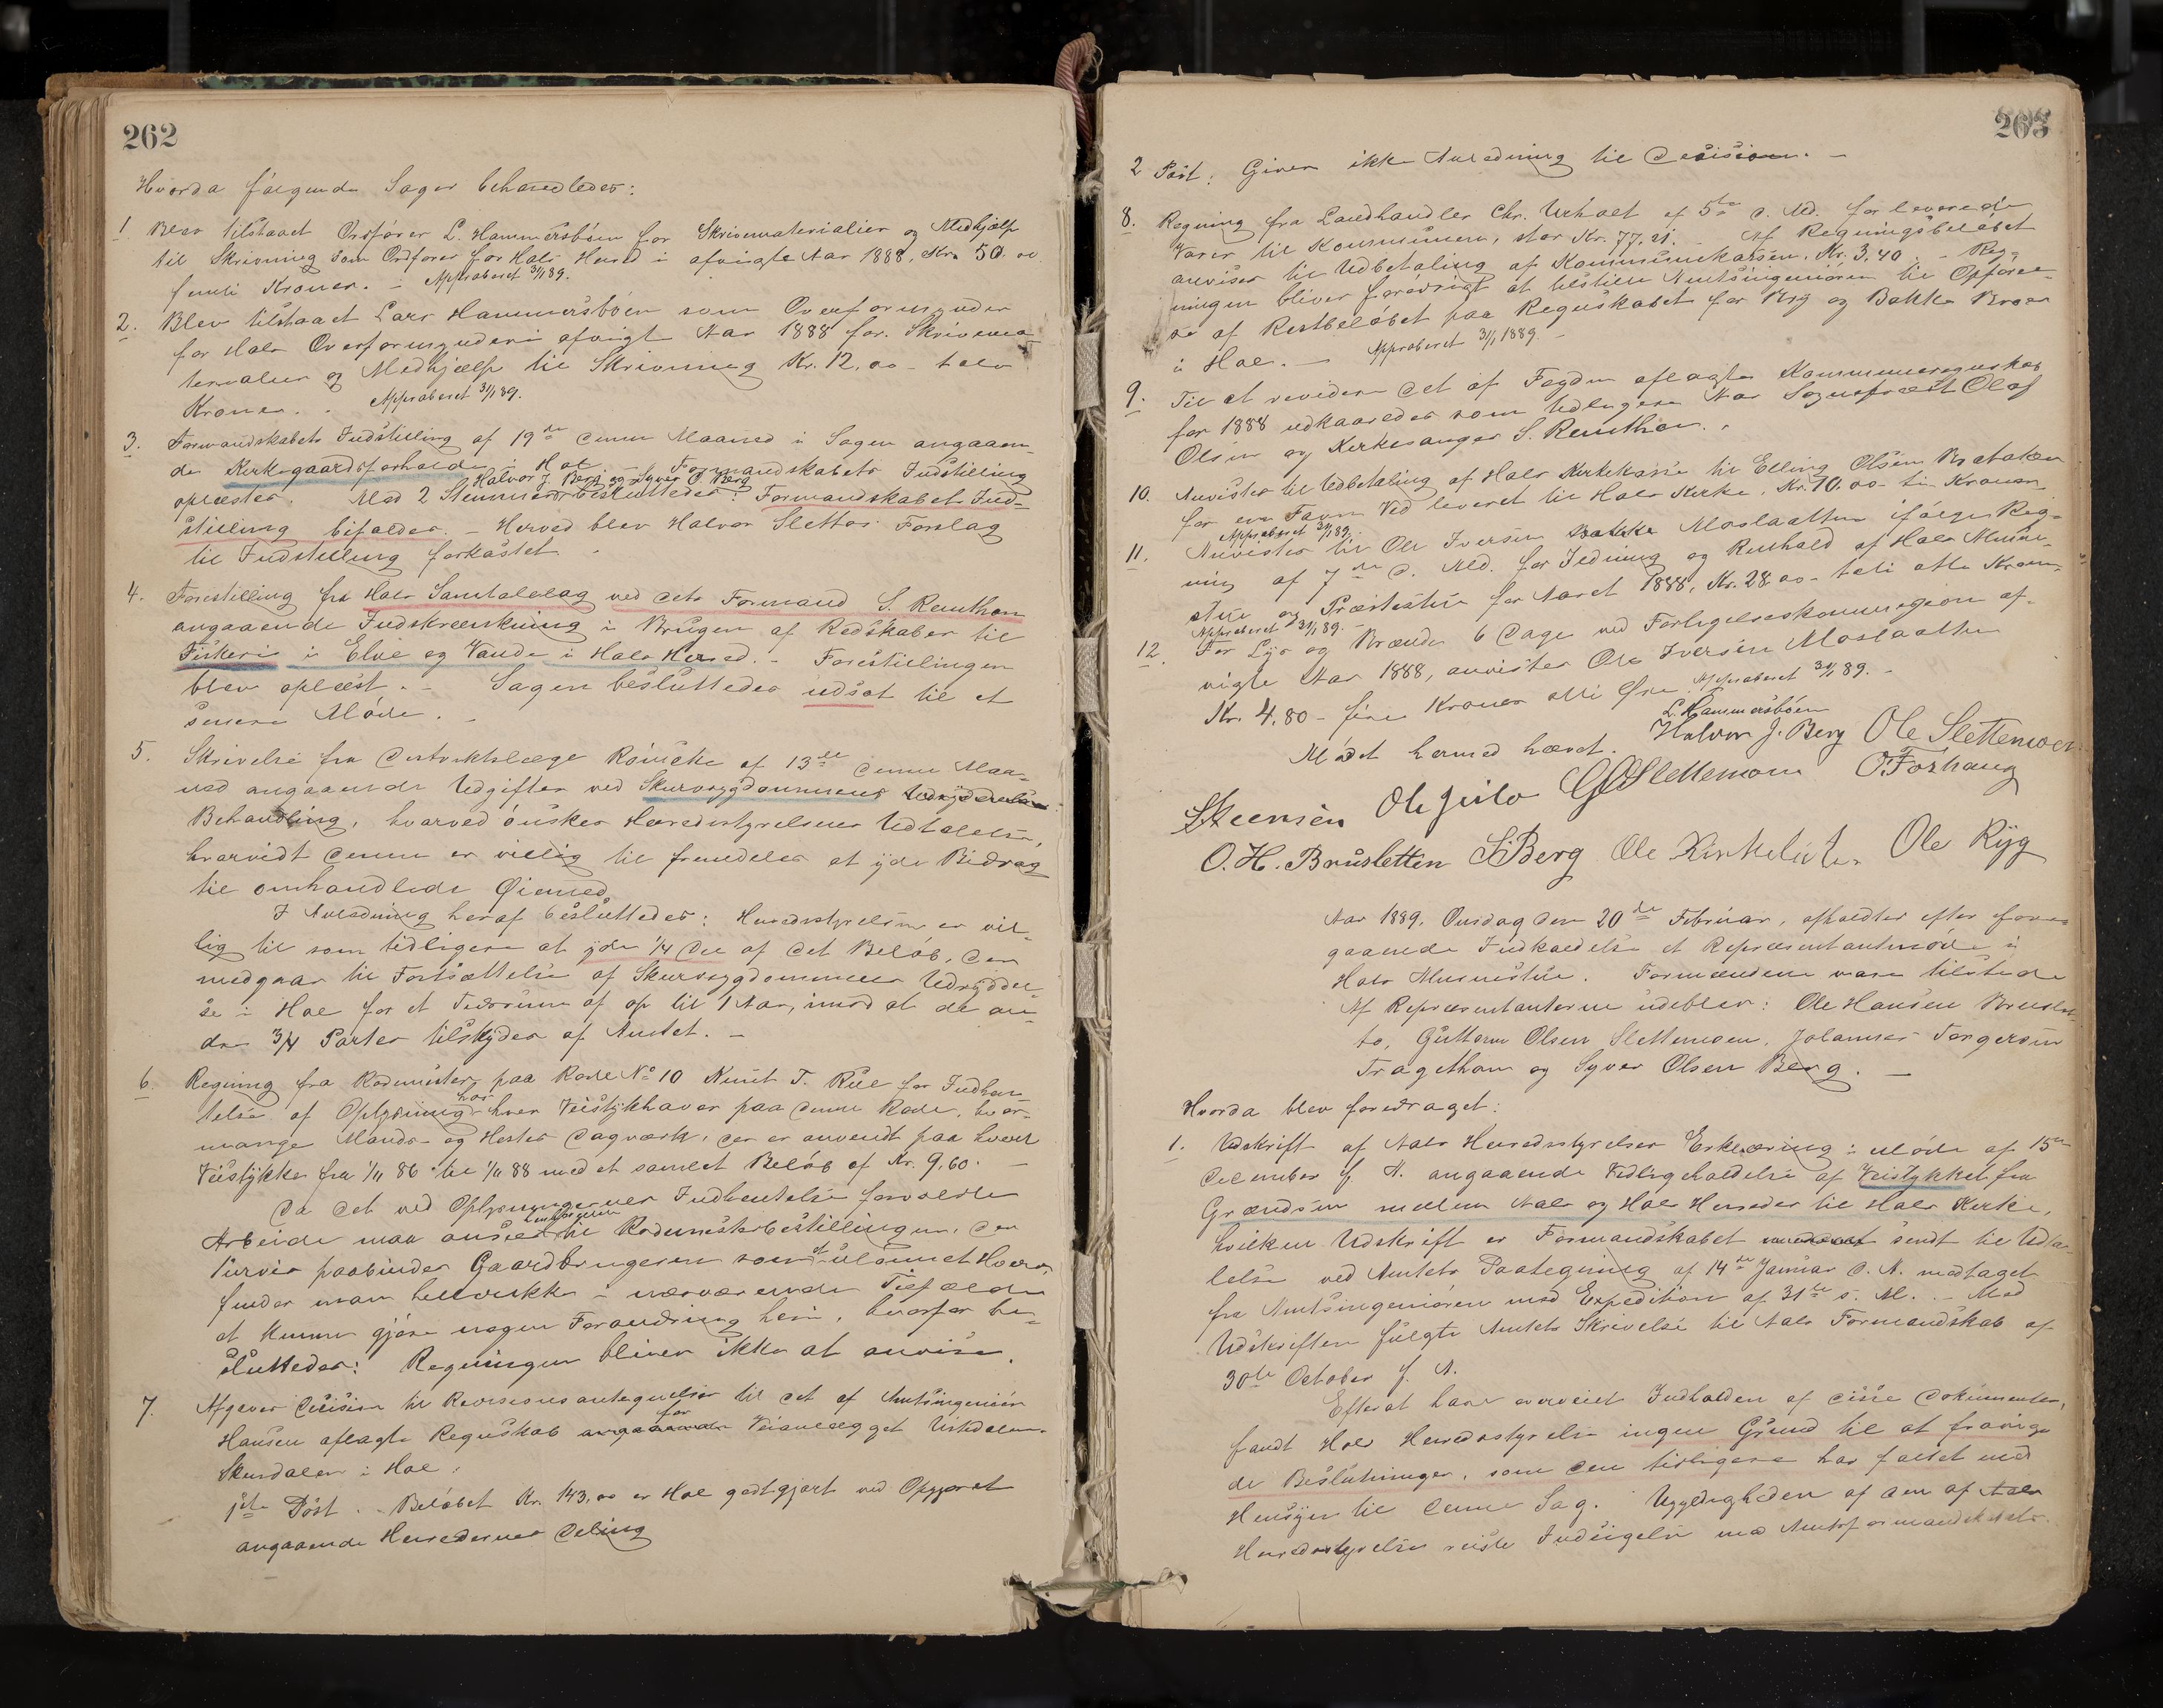 262
Hvorda følgende Sager behandledes:
1. Blev tilstaaet Ordfører L. Hammersbøen for Skrivematerialier og Medhjælp
til Skrivning som Ordfører for Hols Hered i afvigte Aar 1888, Kr. 50.00
femti Kroner. – Approberet 31/1 89.
2. Blev tilstaaet Lars Hammersbøen som Overformynder
for Hols Overformynderi afvigt Aar 1888 for Skrivema-
terialier og Medhjælp til Skrivning Kr. 12,00 – tolv
Kroner. – Approberet 31/1 89.
3. Formandskabets Indstilling af 19de denne Maaned i Sagen angaaen-
de Kirkegaardsforholde i Hol – Formandskabets Indstilling
Halvor J. Berg og Syver O. Berg
oplæstes. Mod 2 Stemmer besluttedes: Formandskabets Ind-
stilling bifaldes. – Herved blev Halvor Slettos Forslag
til Indstilling forkastet. –
4. Forestilling fra Hols Samtalelag ved dets Formand S. Reinthon
angaaende Indskrænkning i Brugen af Redskaber til
Fiskeri i Elve og Vande i Hols Hered. – Forestillingen
blev oplæst. – Sagen besluttedes udsat til et
senere Møde. –
5. Skrivelse fra Distriktslæge Röincke af 13de denne Maa-
ned angaaende Udgifter ved Skurvsygdommens Udryddelse
Behandling, hvorved ønskes Heredsstyrelsens Udtalelse,
hvorvidt denne er villig til fremdeles at yde Bidrag
til omhandlede Øiemed
I Anledning heraf besluttedes: Heredsstyrelsen er vil-
lig til som tidligere at yde 1/4 Del af det Beløb, der
medgaar til Fortsættelse af Skurvsygdommens Udryddel-
se i Hol for et Tidsrum af op til 1 Aar, imod at de an-
dre 3/4 Parter tilskydes af Amtet. –
6. Regning fra Rodemester paa Rode No 10 Knut T. Rue for Indhen-
telse af Oplysning hos hver Veistykhaver paa denne Rode, hvor-
mange Mands- og Hestes Dagværk, der er anvendt paa hvert
Veistykke fra 1/11 86 til 1/11 88 med et samlet Beløb af Kr. 9,60. –
Da det ved Oplysningernes Indhentelse forvoldte
Arbeide maa ansees henhørende til Rodemesterbestillingen, der
Turvis paabindes Gaardbrugeren som et ulønnet Hverv,
finder man heller ikke i nærværende Tilfælde
at kunne gjøre nogen Forandring heri, hvorfor be-
sluttedes: Regningen bliver ikke at anvise.
7. Afgaves Decision til Revisionsantegnelser til det af Amtsingeniør
Hansen aflagte Regnskab angaaende for Veianlægget Ustedalen-
Skurdalen i Hol:
1ste Post. – Beløbet Kr. 143,00 er Hol godtgjort ved Opgjøret
angaaende Herredernes Deling
263
2 Post: Giver ikke Anledning til Decision. –
8. Regning fra Landhandler Chr. Ucholt af 5te d. Md. for leverede
Varer til Kommunen, stor Kr. 77,21. – Af Regningsbeløbet
anvises til Udbetaling af Kommunekassen, Kr. 3,40. – Reg-
ningen bliver forøvrigt at tilstille Amtsingeniøren til Opførel-
se af Restbeløbet paa Regnskabet for Ryg og Bakke Broer
i Hol. – Approberet 31/1 1889. –
9. Til at revidere det af Fogden aflagte Kommuneregnskab
for 1888 udkaaredes som Udlignere Aar Sognepræst Olaf
Olsen og Kirkesanger S. Reinthon. –
10. Anvistes til Udbetaling af Hols Kirkekasse til Elling Olsen Brataker
for en Favn Ved leveret til Hols Kirke, Kr. 10,00 – ti Kroner
Approberet 31/1 89.
11. Anvistes til Ole Iversen Bakke Moslaatten ifølge Reg-
ning af 7de d. Md. for Fedning og Renhold af Hols Musæ-
stue og Præstestue for Aaret 1888, Kr. 28.00 – toti otte Kroner
Approberet 31/1 89. –
12. For Lys og Brænde 6 Dage ved Forligelseskommission af-
vigte Aar 1888, anvistes Ole Iversen Moslaatten
Kr. 4,80 – fire Kroner otti Øre. Approberet 31/1 89. –
Mødet hermed hævet.
L. Hammersbøen
Halvor J. Berg Ole Slettemoen
O. Forhaug
O. H. Brusletten S Berg Ole Kirkeluten Ole Ryg
Aar 1889, Onsdag den 20de Februar, afholdtes efter fore-
gaaende Indkaldelse et Repræsentantmøde i
Hols Musæstue. Formændene vare tilstede
Af Repræsentanterne udeblev: Ole Hansen Bruslet-
to, Guttorm Olsen Slettemoen, Johannes Torgersen
Tragethon og Syver Olsen Berg. –
Hvorda blev foredraget:
1. Udskrift af Aals Heredsstyrelses Erklæring i Møde af 15de
December f. A. angaaende Vedligeholdelse af Veistykket fra
Grændsen mellem Aals og Hols Hereder til Hols Kirke,
hvilken Udskrift er Formandskabet sendt til Udta-
lelse ved Amtets Paategning af 14de Januar d. A. modtaget
fra Amtsingeniøren med Expedition af 31te s. M. – Med
Udskriften fulgte Amtets Skrivelse til Aals Formandskab af
30te October f. A.
Efterat have overveiet Indholden af disse Dokumenter,
fandt Hols Heredsstyrelse ingen Grund til at fravige
de Beslutninger, som den tidligere har fattet med
Hensyn til denne Sag. Ugyldigheden af den af Aals
Heredsstyrelse reiste Indsigelse mod Amtsformandskabets